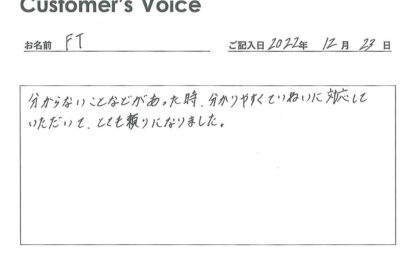 Customer's Voice
お名前 FT ご記入日 2022年 12月 23日
分からないことなどがあった時、分かりやすくていねいに対応して
いただいて、とても頼りになりました。